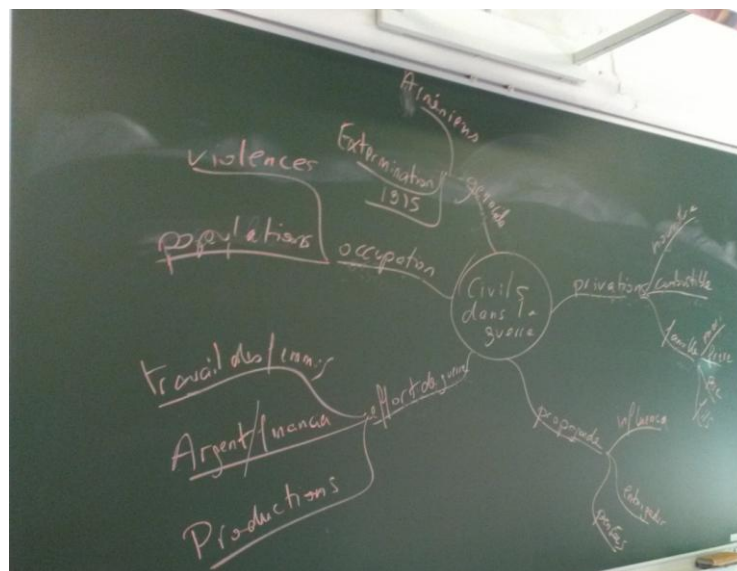 Civils
dans la
guerre
génocide
Arméniens
Extermination
1915
occupation
violences
populations
effort de guerre
travail des femmes
Argent/financier
Productions
privations
combustible
famille
père
propagande
influence